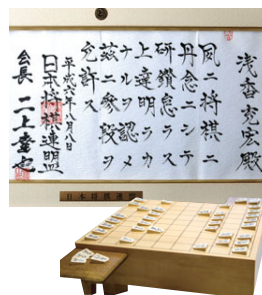 浅香宏殿
夙ニ将棋ニ
丹念ニシテ
研鑽怠ラス
上達明ラカ
ナルヲ認メ
茲ニ参段ヲ
允許ス
平成六年八月八日
日本将棋連盟
会長 二上達也
日本将棋連盟